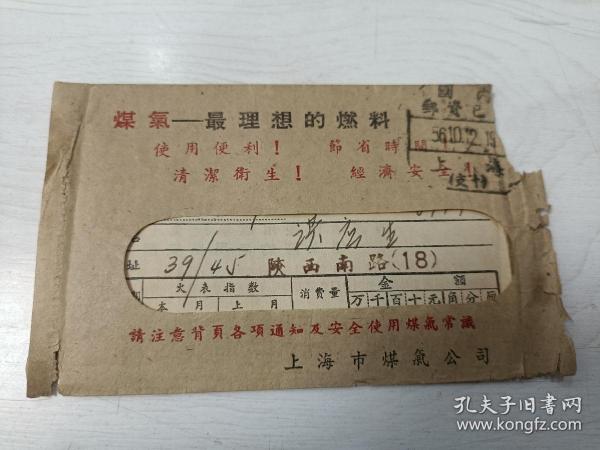 煤氣—最理想的燃料
國內
郵資已
56.10.12.19
上海
使用便利! 節省時間!
清潔衛生! 經濟安全!
址 39/45 陝西南路(18)
火表指數 消費量 金額
本月 上月 万千百十元角分
請注意背頁各項通知及安全使用煤氣常識
上海市煤氣公司
孔夫子旧書网
www.kongfz.com